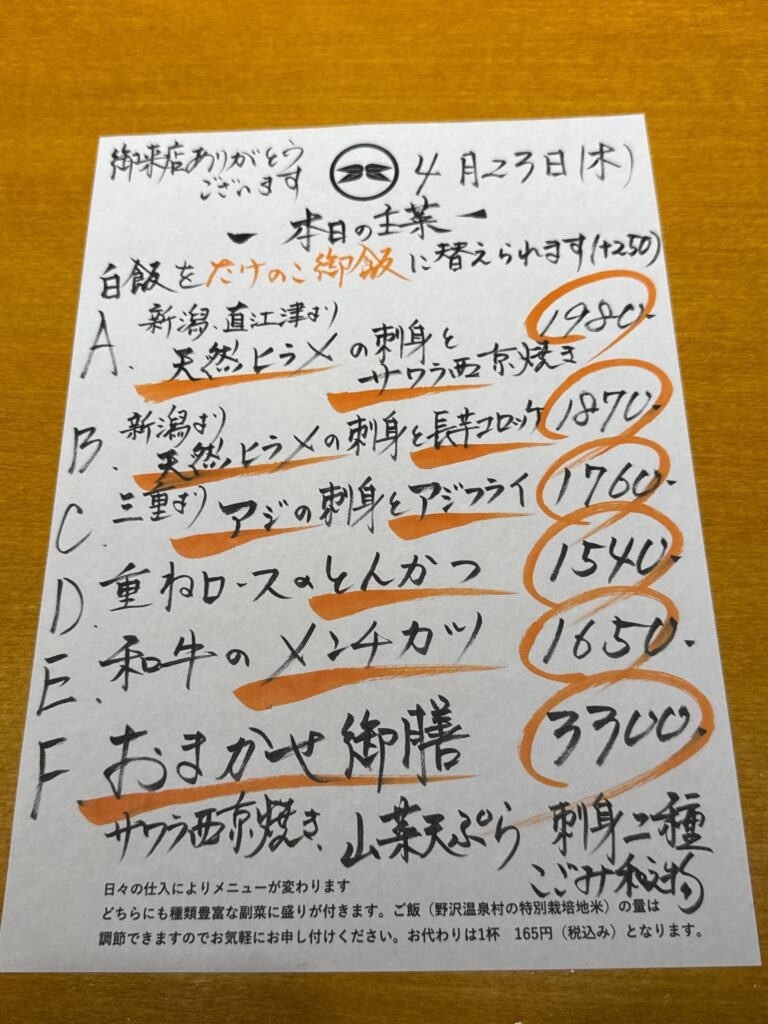 御来店ありがとう
ございます
4月23日(木)
本日の主菜
白飯をたけのこ御飯に替えられます(+250)
A. 新潟、直江津より
天然ヒラメの刺身と
サワラ西京焼き
1980-
B. 新潟より
天然ヒラメの刺身と長芋コロッケ 1870-
C. 三重より アジの刺身とアジフライ 1760-
D. 重ねロースのとんかつ 1540-
E. 和牛のメンチカツ 1650-
F. おまかせ御膳 3300-
サワラ西京焼き、山菜天ぷら 刺身二種
こごみ和え物
日々の仕入によりメニューが変わります
どちらにも種類豊富な副菜に盛りが付きます。ご飯（野沢温泉村の特別栽培地米）の量は
調節できますのでお気軽にお申し付けください。お代わりは1杯 165円（税込み）となります。